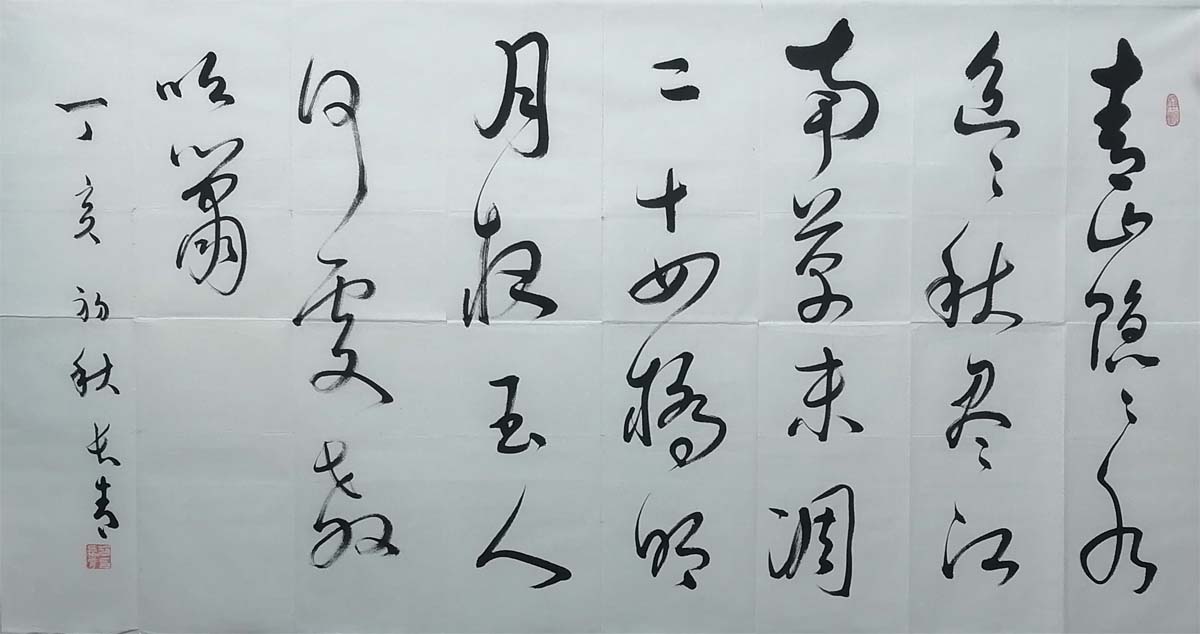 青山隐々水
迢々秋尽江
南草未凋
二十四橋明
月夜玉人
何處教
吹簫
丁亥初秋长青